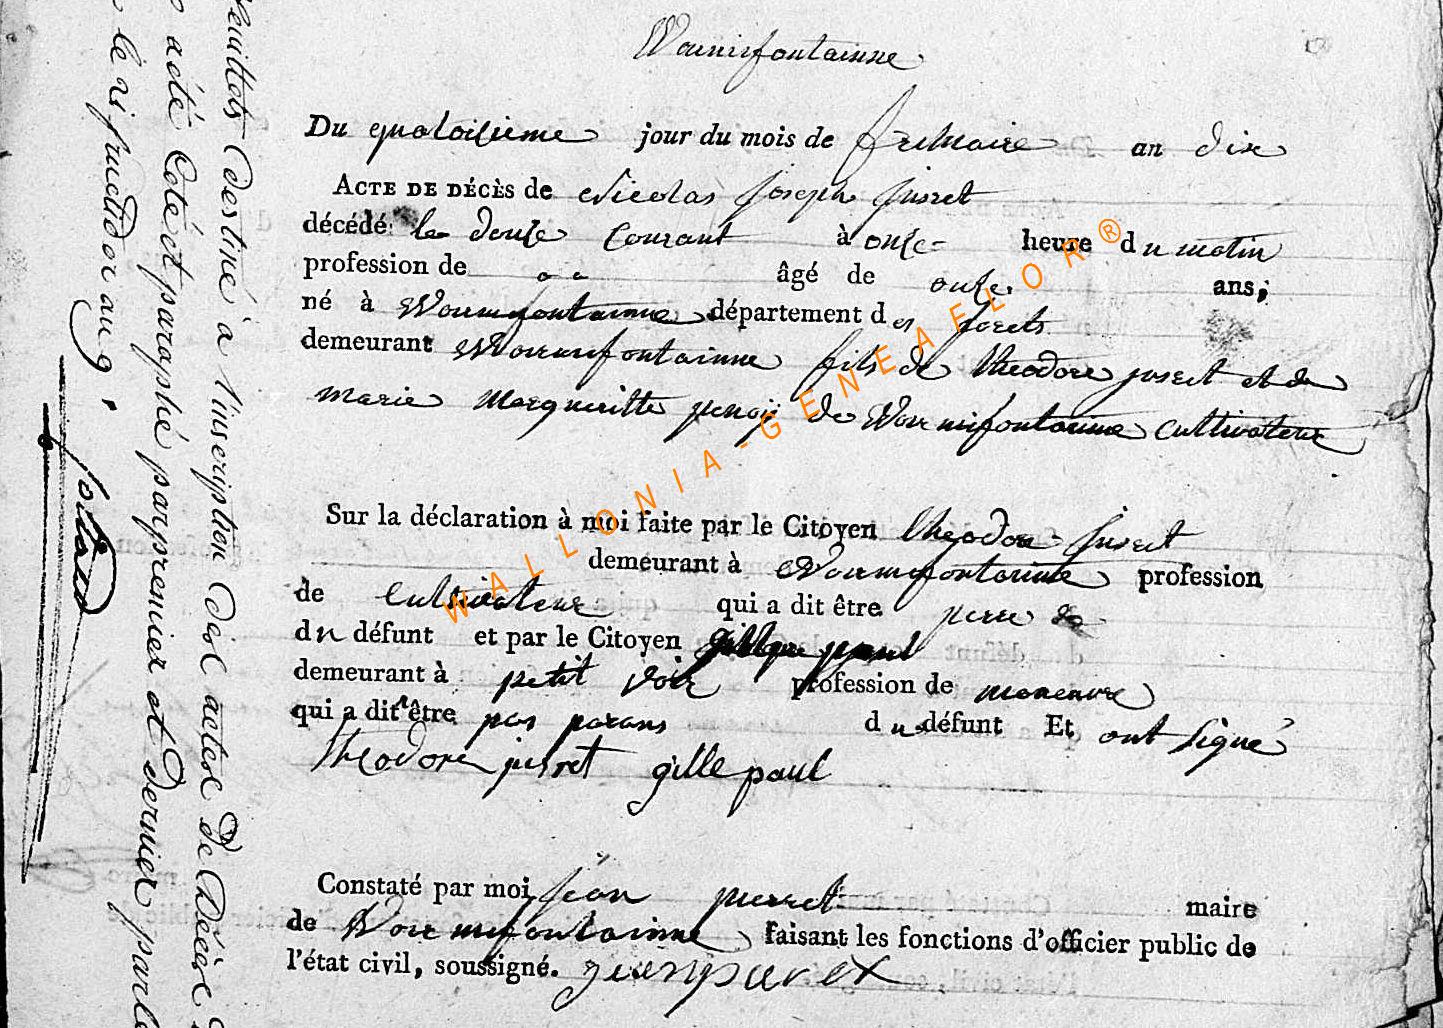 Wourmifontainne
Du quatoisieme jour du mois de frimaire an dix
ACTE DE DÉCÈS de Nicolas Joseph
décédé le douse Courant à onse heure du matin
profession de âgé de onse ans;
né à Wourmifontainne département des forets
demeurant Wourmifontainne fils de theodore et de
marie Margueritte de Wourmifontainne Cultivateur
Sur la déclaration à moi faite par le Citoyen theodore
demeurant à Wourmifontainne profession
de Cultivateur qui a dit être perre
du défunt et par le Citoyen gille paul
demeurant à petit voir profession de maneuvre
qui a dit être pas parans du défunt Et ont signé
theodore pierret gille paul
Constaté par moi jean pierret maire
de Wourmifontainne faisant les fonctions d'officier public de
l'état civil, soussigné.
feuillets destiné à l'inscription des actes de Décès
acté Coté et paraphé par premier et dernier par
WALLONIA-GENEAFLOR®